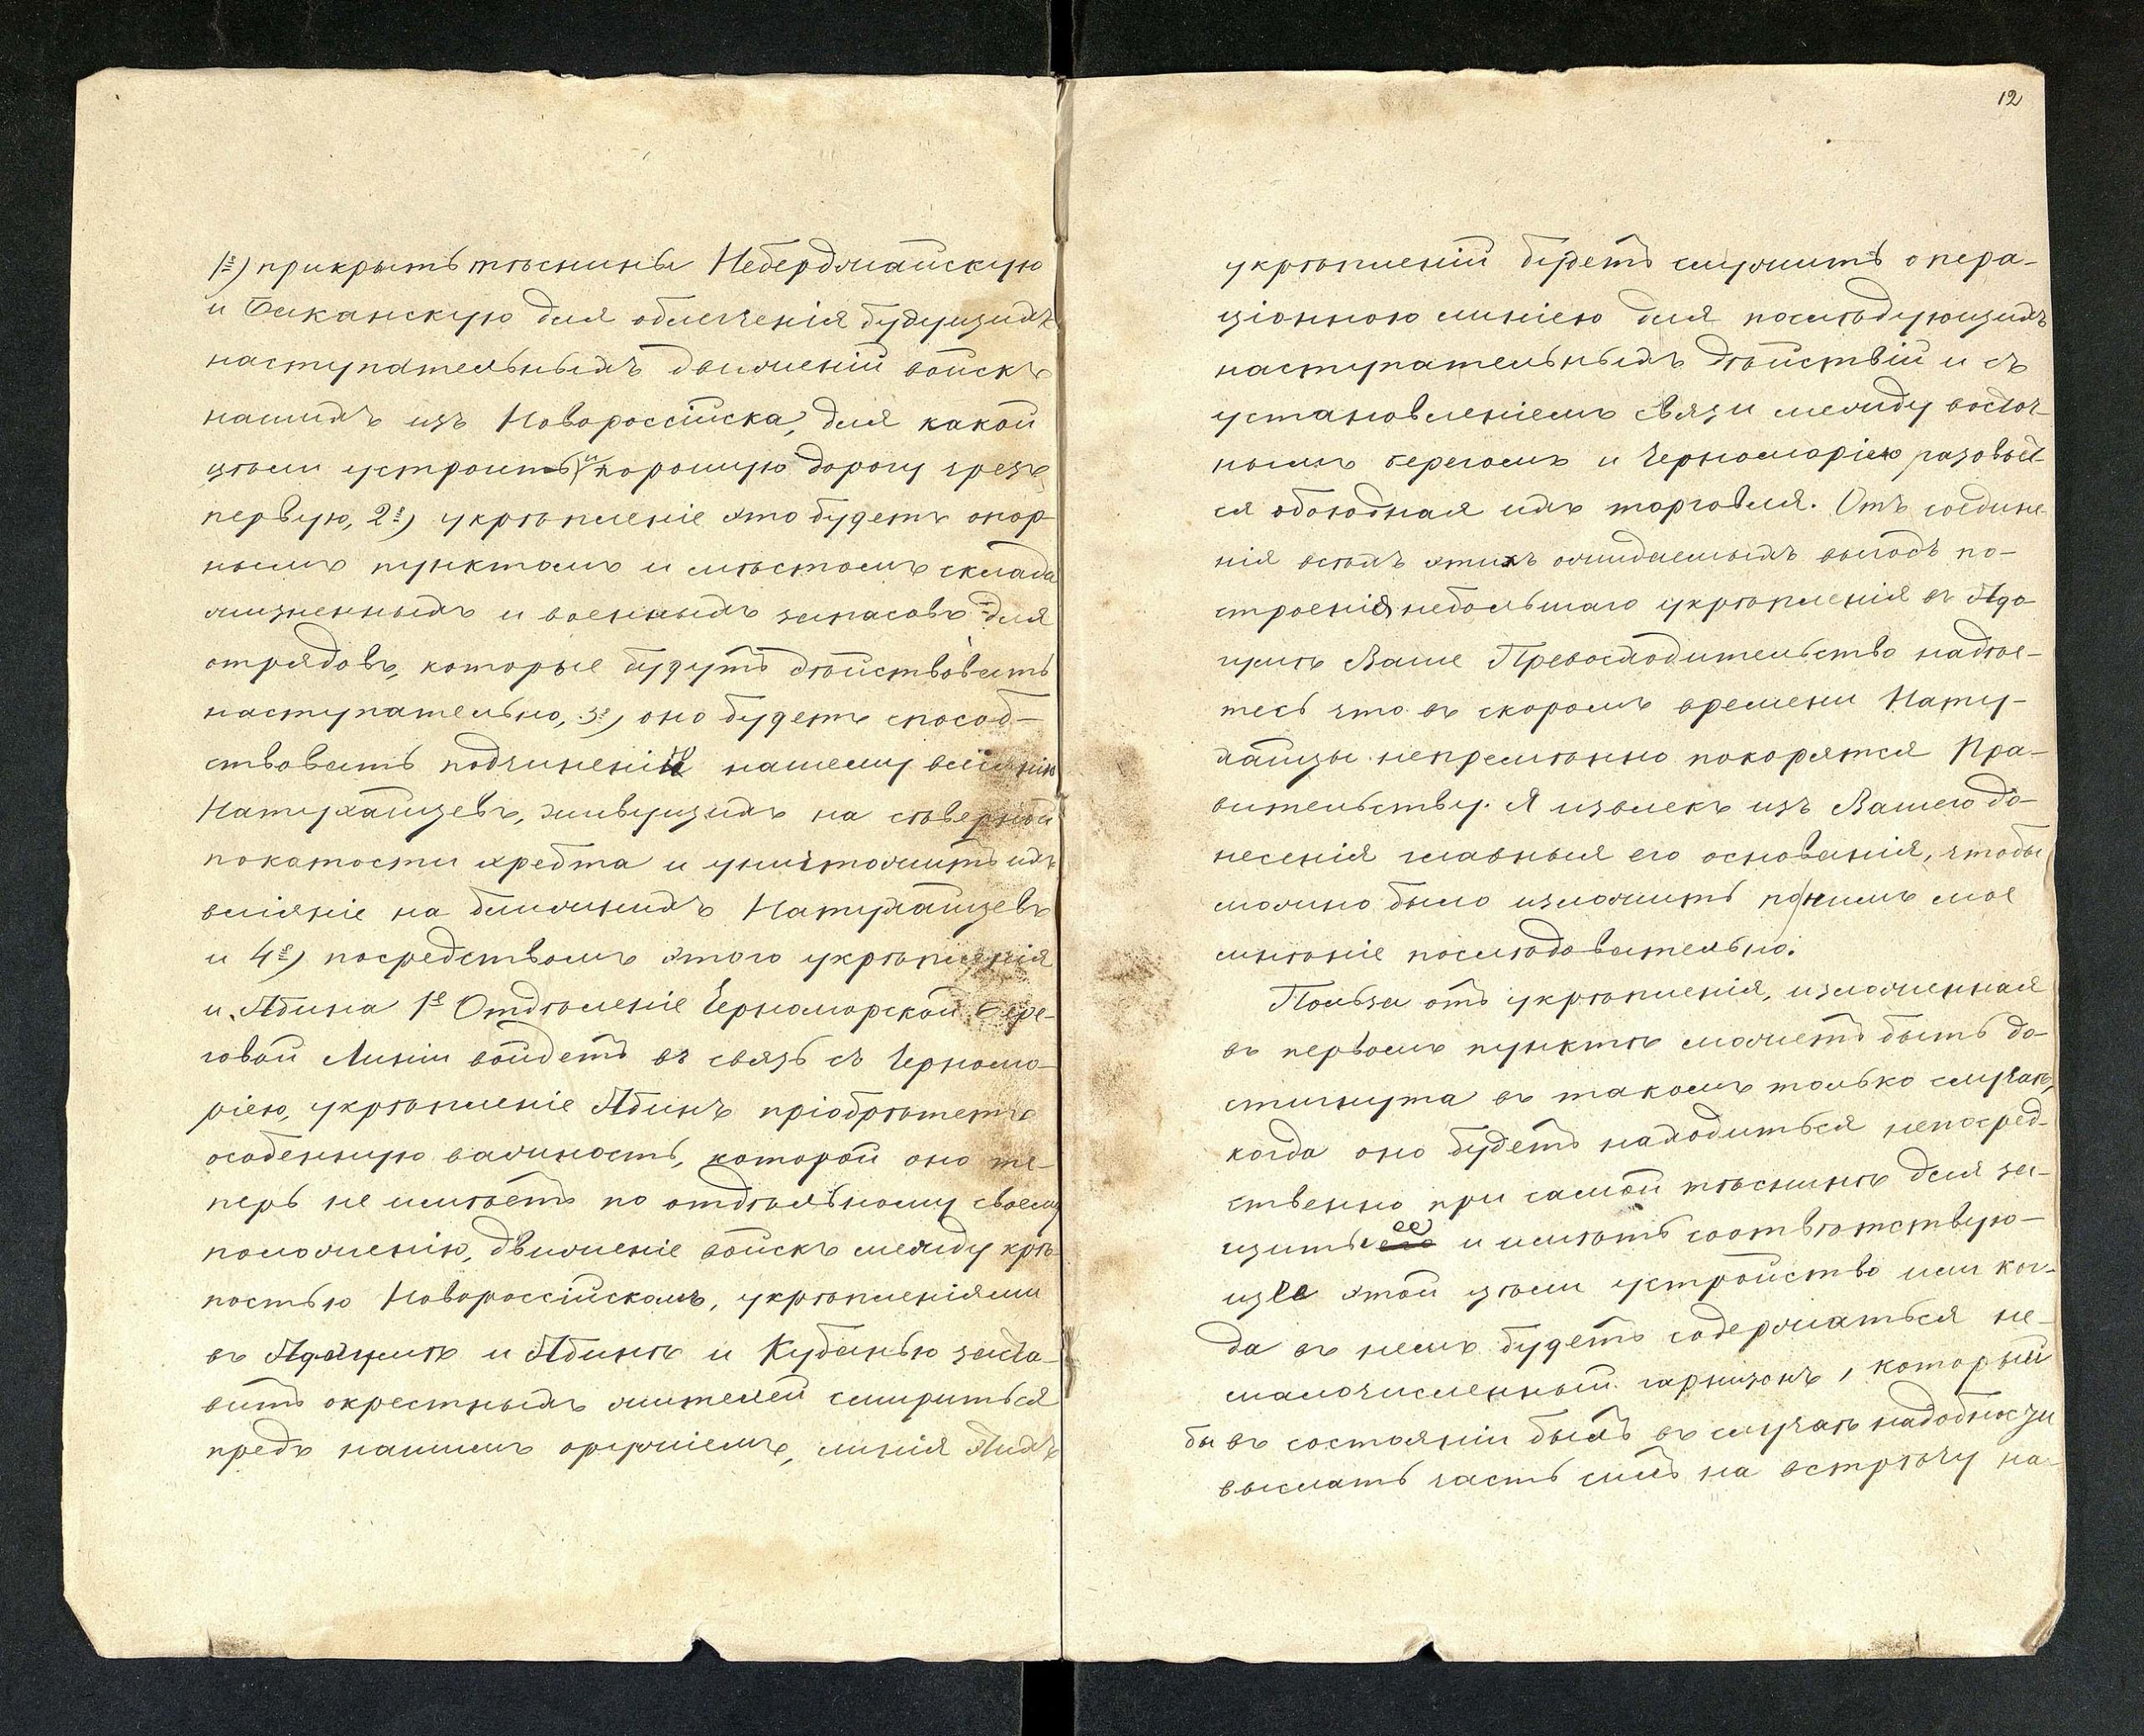 1е) прикрыть тѣснины Неберджайскую
и Баканскую для облегченія будущихъ
наступательныхъ движеній войскъ
нашихъ изъ Новороссійска, для какой
цѣли устроить и хорошую дорогу чрезъ
первую, 2е) укрѣпленіе это будетъ опор-
нымъ пунктомъ и мѣстомъ склада
жизненныхъ и военныхъ запасовъ для
отрядовъ, которые будутъ дѣйствовать
наступательно, 3е) оно будетъ способ-
ствовать подчиненію нашему вліянію
Натухайцевъ, живущихъ на сѣверной
покатости хребта и уничтожитъ ихъ
вліяніе на ближнихъ Натухайцевъ
и 4е) посредствомъ этого укрѣпленія
и Абина 1е Отдѣленіе Черноморской Бере-
говой Линіи войдетъ въ связь съ Черномо-
ріею, укрѣпленіе Абинъ пріобрѣтетъ
особенную важность, которой оно те-
перь не имѣетъ по отдѣльному своему
положенію, движеніе войскъ между крѣ-
постью Новороссійскомъ, укрѣпленіями
въ Адагумѣ и Абинѣ и Кубанью заста-
витъ окрестныхъ жителей смириться
предъ нашимъ оружіемъ, линія этихъ
12
укрѣпленій будетъ служить опера-
ціонною линіею для послѣдующихъ
наступательныхъ дѣйствій и съ
установленіемъ связи между восточ-
нымъ берегомъ и Черноморіею разовьет-
ся обоюдная ихъ торговля. Отъ соедине-
нія всѣхъ этихъ ожидаемыхъ выгодъ по-
строенія небольшаго укрѣпленія въ Ада-
гумѣ Ваше Превосходительство надѣе-
тесь что въ скоромъ времени Нату-
хайцы непремѣнно покорятся Пра-
вительству. Я извлекъ изъ Вашего до-
несенія главныя его основанія, чтобы
можно было изложить по нимъ мое
мнѣніе послѣдовательно.
Польза отъ укрѣпленія, изложенная
въ первомъ пунктѣ можетъ быть до-
стигнута въ такомъ только случаѣ,
когда оно будетъ находиться непосред-
ственно при самой тѣснинѣ для за-
щиты его ее и имѣть соотвѣтствую-
щее этой цѣли устройство или ког-
да въ немъ будетъ содержаться не-
малочисленный гарнизонъ, который
бы въ состояніи былъ въ случаѣ надобности
выслать часть силъ на встрѣчу на-